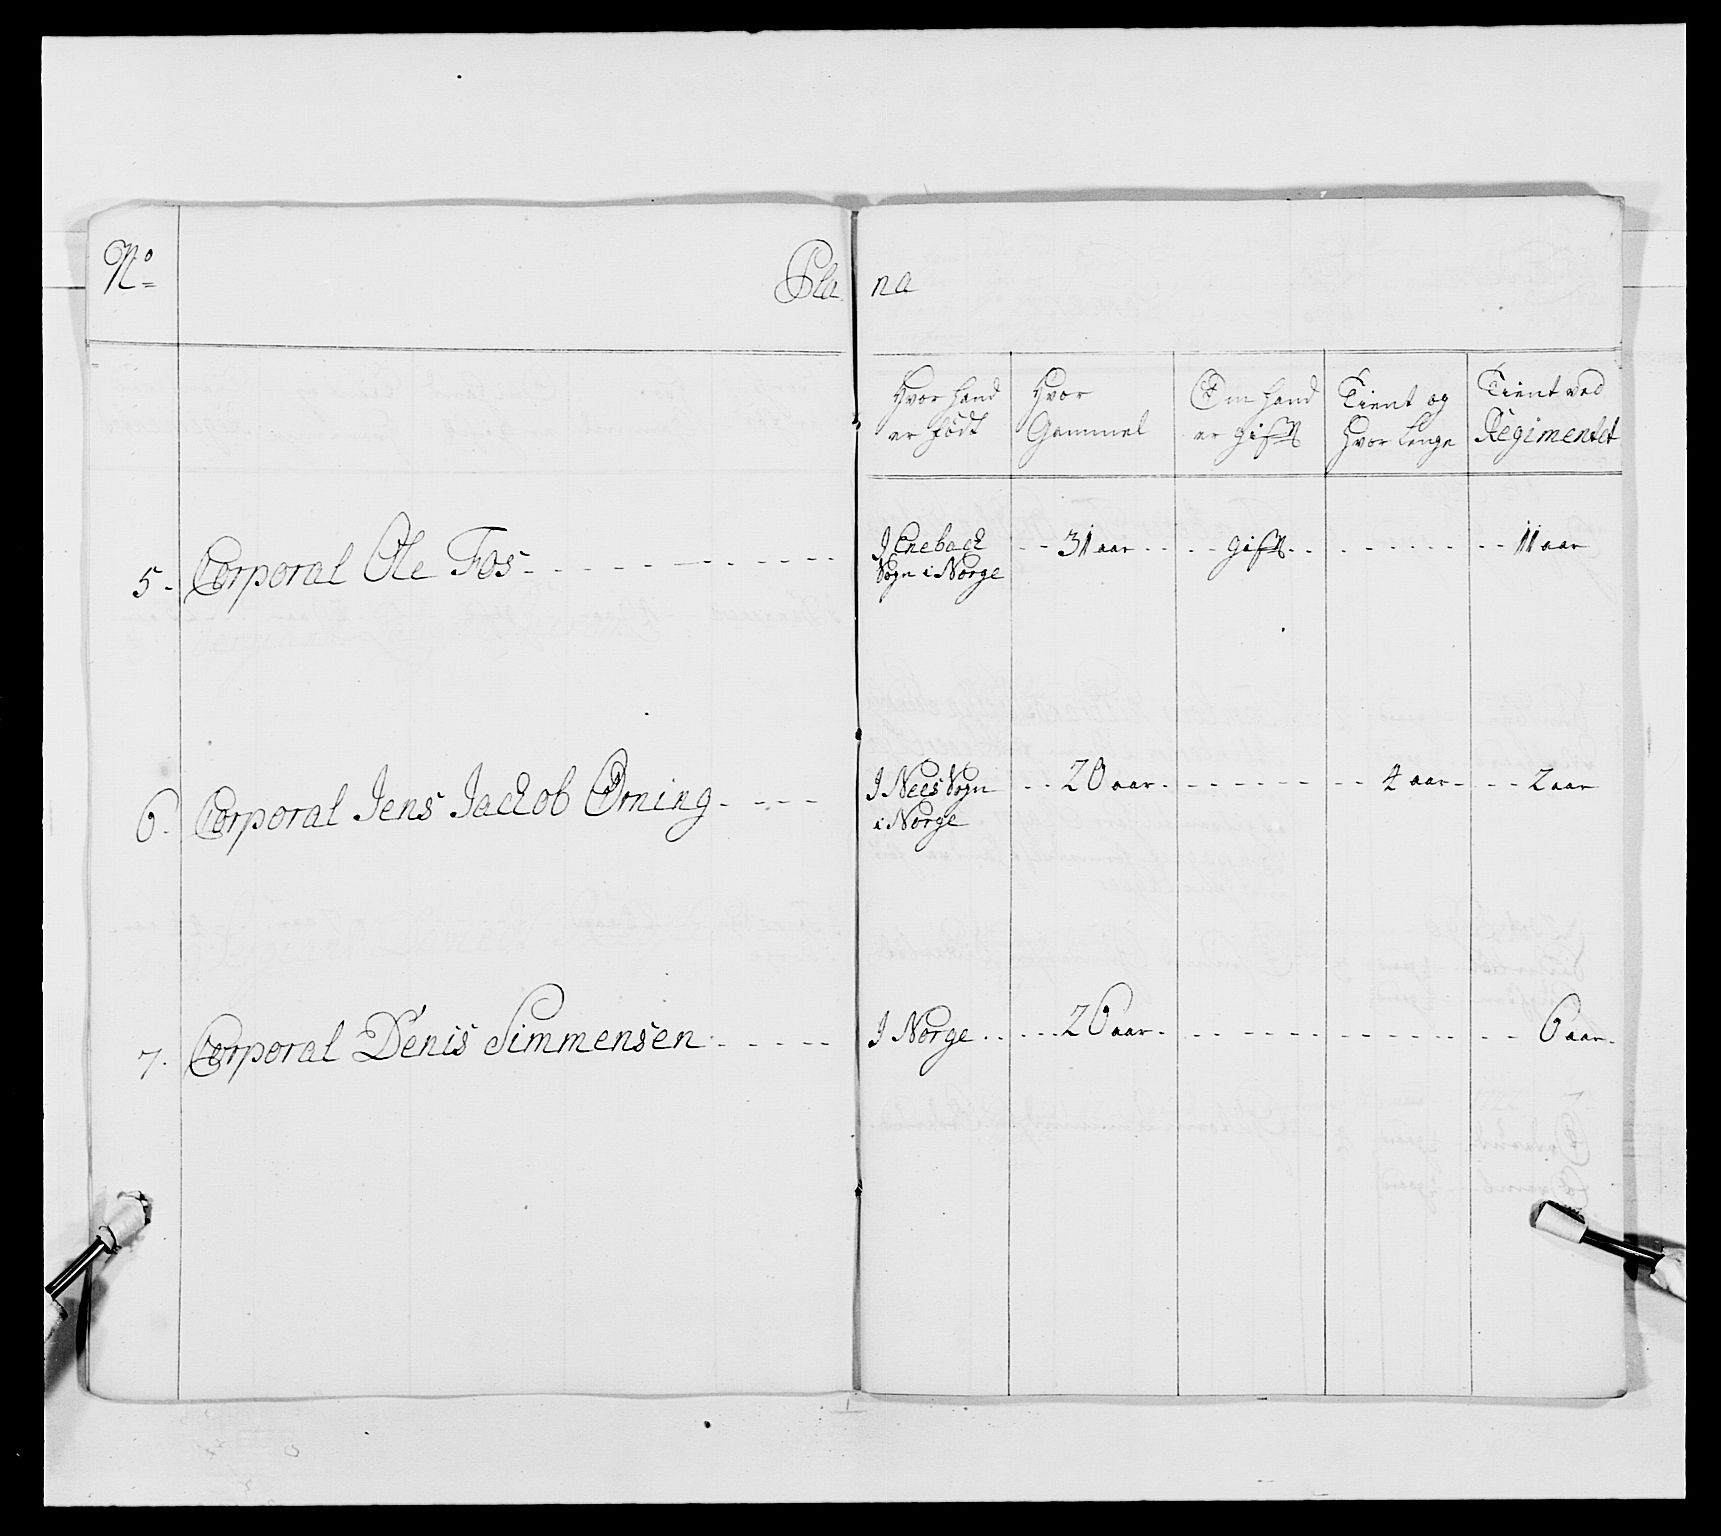 No
Pla na
Hvor hand er født
Hvor Gammel
Om hand er gift
Tient og Hvor Lenge
Tient ved Regimentet
5. Corporal Ole Fos - - - I Enebach Sogn i Norge - - 31 aar - - - - gift - - - - - - - 11 aar
6. Corporal Jens Jacob Orning - - - - I Nees Sogn i Norge - - - 20 aar - - - - - - - 4 aar - - - - 2 aar
7. Corporal Denis Simmensen - - - - - I Norge - - - - 26 aar - - - - - - - - - - 6 aar